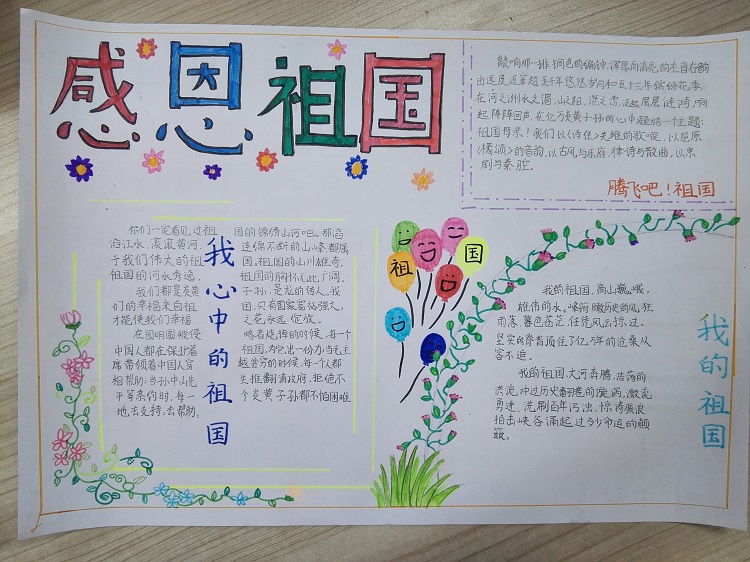 感恩祖国
敲响那一排铜色的编钟，浑厚而清亮的左音右韵
由远及近穿越五千年悠悠岁月和五十三年缤纷花季
在河之洲水之湄，山之阳，漠之北，起层层涟漪，响
起阵阵回声，在亿万炎黄子孙的心中凝结一个主题：
祖国母亲！我们以《诗经》关雎的歌喉，以屈原
《橘颂》的音韵，以古风与乐府，律诗与散曲，以京
剧与秦腔。
腾飞吧！祖国
我心中的祖国
你们一定看见过祖国的锦绣山河吧，那滔
滔江水，滚滚黄河，连绵不断的山峰都属
于我们伟大的祖国，祖国的山川雄奇，
祖国的河水秀逸，祖国的胸怀无比广阔。
我们都是炎黄子孙，是龙的传人，我
们的幸福来自祖国，只有国家富裕强大，
才能使我们幸福之花永远绽放。
在圆明园被侵略者烧掉的时候，每一个
中国人都在保卫着祖国，为它出一份力，当毛主
席带领着中国人穿越贫穷的时候，每一个人都
相帮助，当孙中山先生推翻清政府，拒绝不
平等条约时，每一个炎黄子孙都不怕困难
地去支持，去帮助。
祖
国
我的祖国
我的祖国，高山巍峨，
雄伟的水。峰俯瞰历史的风狂
雨落，暮色苍茫，任凭风云掠过。
坚实的脊背顶住了亿万年的沧桑从
容不迫。
我的祖国，大河奔腾，浩荡的
洪流，冲过历史翻卷的漩涡，激流
勇进，洗刷百年污浊，惊涛骇浪
拍击峡谷涌起过多少命运的颠
簸。